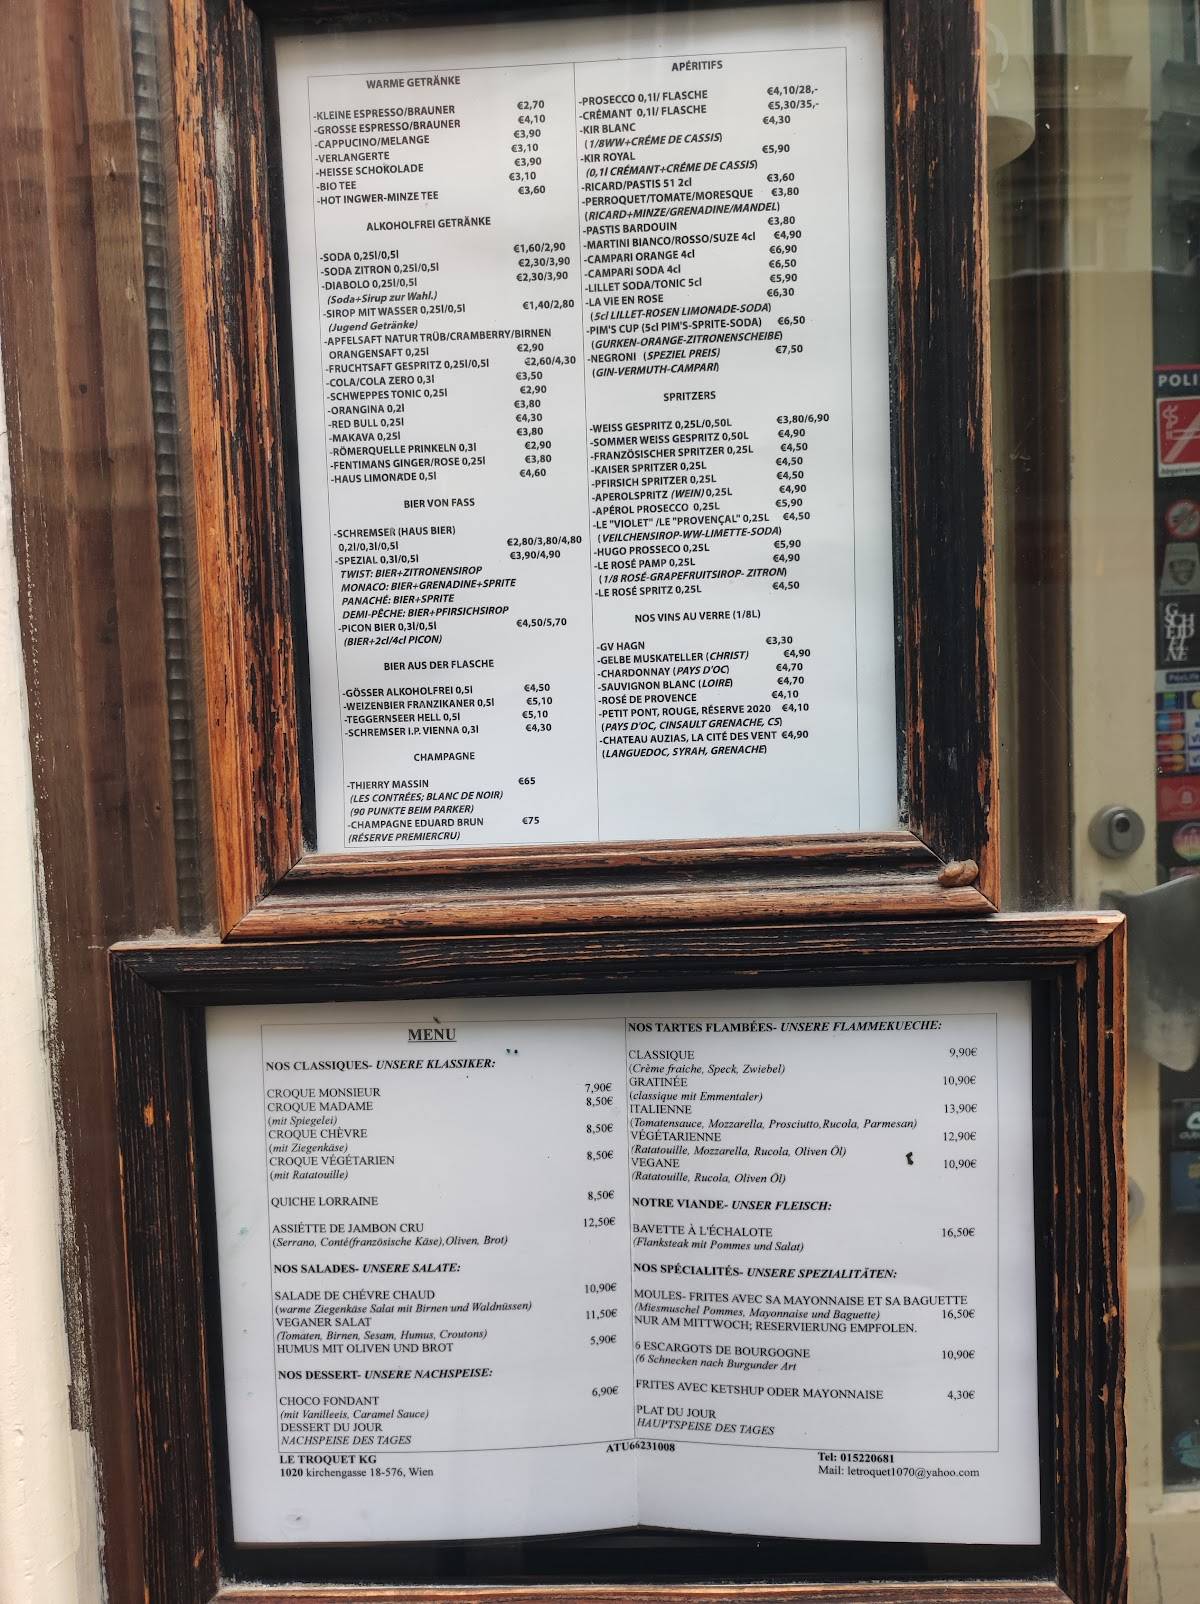 WARME GETRÄNKE
-KLEINE ESPRESSO/BRAUNER €2,70
-GROSSE ESPRESSO/BRAUNER €4,10
-CAPPUCINO/MELANGE €3,90
-VERLANGERTE €3,10
-HEISSE SCHOKOLADE €3,90
-BIO TEE €3,10
-HOT INGWER-MINZE TEE €3,60
ALKOHOLFREI GETRÄNKE
-SODA 0,25l/0,5l €1,60/2,90
-SODA ZITRON 0,25l/0,5l €2,30/3,90
-DIABOLO 0,25l/0,5l €2,30/3,90
(Soda+Sirup zur Wahl.)
-SIROP MIT WASSER 0,25l/0,5l €1,40/2,80
(Jugend Getränke)
-APFELSAFT NATUR TRÜB/CRAMBERRY/BIRNEN
ORANGENSAFT 0,25l €2,90
-FRUCHTSAFT GESPRITZ 0,25l/0,5l €2,60/4,30
-COLA/COLA ZERO 0,3l €3,50
-SCHWEPPES TONIC 0,25l €2,90
-ORANGINA 0,2l €3,80
-RED BULL 0,25l €4,30
-MAKAVA 0,25l €3,80
-RÖMERQUELLE PRINKELN 0,3l €2,90
-FENTIMANS GINGER/ROSE 0,25l €3,80
-HAUS LIMONADE 0,5l €4,60
BIER VON FASS
-SCHREMSER (HAUS BIER)
0,2l/0,3l/0,5l €2,80/3,80/4,80
-SPEZIAL 0,3l/0,5l €3,90/4,90
TWIST: BIER+ZITRONENSIROP
MONACO: BIER+GRENADINE+SPRITE
PANACHÉ: BIER+SPRITE
DEMI-PÊCHE: BIER+PFIRSICHSIROP
-PICON BIER 0,3l/0,5l €4,50/5,70
(BIER+2cl/4cl PICON)
BIER AUS DER FLASCHE
-GÖSSER ALKOHOLFREI 0,5l €4,50
-WEIZENBIER FRANZIKANER 0,5l €5,10
-TEGGERNSEER HELL 0,5l €5,10
-SCHREMSER I.P. VIENNA 0,3l €4,30
CHAMPAGNE
-THIERRY MASSIN €65
(LES CONTRÉES; BLANC DE NOIR)
(90 PUNKTE BEIM PARKER)
-CHAMPAGNE EDUARD BRUN €75
(RÉSERVE PREMIERCRU)
APÉRITIFS
-PROSECCO 0,1l/ FLASCHE €4,10/28,-
-CRÉMANT 0,1l/ FLASCHE €5,30/35,-
-KIR BLANC €4,30
(1/8WW+CRÉME DE CASSIS)
-KIR ROYAL €5,90
(0,1l CRÉMANT+CRÉME DE CASSIS)
-RICARD/PASTIS 51 2cl €3,60
-PERROQUET/TOMATE/MORESQUE €3,80
(RICARD+MINZE/GRENADINE/MANDEL)
-PASTIS BARDOUIN €3,80
-MARTINI BIANCO/ROSSO/SUZE 4cl €4,90
-CAMPARI ORANGE 4cl €6,90
-CAMPARI SODA 4cl €6,50
-LILLET SODA/TONIC 5cl €5,90
-LA VIE EN ROSE €6,30
(5cl LILLET-ROSEN LIMONADE-SODA)
-PIM'S CUP (5cl PIM'S-SPRITE-SODA) €6,50
(GURKEN-ORANGE-ZITRONENSCHEIBE)
-NEGRONI (SPEZIEL PREIS) €7,50
(GIN-VERMUTH-CAMPARI)
SPRITZERS
-WEISS GESPRITZ 0,25L/0,50L €3,80/6,90
-SOMMER WEISS GESPRITZ 0,50L €4,90
-FRANZÖSISCHER SPRITZER 0,25L €4,50
-KAISER SPRITZER 0,25L €4,50
-PFIRSICH SPRITZER 0,25L €4,50
-APEROLSPRITZ (WEIN) 0,25L €4,90
-APÉROL PROSECCO 0,25L €5,90
-LE "VIOLET" /LE "PROVENÇAL" 0,25L €4,50
(VEILCHENSIROP-WW-LIMETTE-SODA)
-HUGO PROSSECO 0,25L €5,90
-LE ROSÉ PAMP 0,25L €4,90
(1/8 ROSÉ-GRAPEFRUITSIROP- ZITRON)
-LE ROSÉ SPRITZ 0,25L €4,50
NOS VINS AU VERRE (1/8L)
-GV HAGN €3,30
-GELBE MUSKATELLER (CHRIST) €4,90
-CHARDONNAY (PAYS D'OC) €4,70
-SAUVIGNON BLANC (LOIRE) €4,70
-ROSÉ DE PROVENCE €4,10
-PETIT PONT, ROUGE, RÉSERVE 2020 €4,10
(PAYS D'OC, CINSAULT GRENACHE, CS)
-CHATEAU AUZIAS, LA CITÉ DES VENT €4,90
(LANGUEDOC, SYRAH, GRENACHE)
MENU
NOS CLASSIQUES- UNSERE KLASSIKER:
CROQUE MONSIEUR 7,90€
CROQUE MADAME 8,50€
(mit Spiegelei)
CROQUE CHÈVRE 8,50€
(mit Ziegenkäse)
CROQUE VÉGÉTARIEN 8,50€
(mit Ratatouille)
QUICHE LORRAINE 8,50€
ASSIÉTTE DE JAMBON CRU 12,50€
(Serrano, Conté(französische Käse),Oliven, Brot)
NOS SALADES- UNSERE SALATE:
SALADE DE CHÉVRE CHAUD 10,90€
(warme Ziegenkäse Salat mit Birnen und Waldnüssen)
VEGANER SALAT 11,50€
(Tomaten, Birnen, Sesam, Humus, Croutons)
HUMUS MIT OLIVEN UND BROT 5,90€
NOS DESSERT- UNSERE NACHSPEISE:
CHOCO FONDANT 6,90€
(mit Vanilleeis, Caramel Sauce)
DESSERT DU JOUR
NACHSPEISE DES TAGES
NOS TARTES FLAMBÉES- UNSERE FLAMMEKUECHE:
CLASSIQUE 9,90€
(Crème fraiche, Speck, Zwiebel)
GRATINÉE 10,90€
(classique mit Emmentaler)
ITALIENNE 13,90€
(Tomatensauce, Mozzarella, Prosciutto,Rucola, Parmesan)
VÉGÉTARIENNE 12,90€
(Ratatouille, Mozzarella, Rucola, Oliven Öl)
VEGANE 10,90€
(Ratatouille, Rucola, Oliven Öl)
NOTRE VIANDE- UNSER FLEISCH:
BAVETTE À L'ÉCHALOTE 16,50€
(Flanksteak mit Pommes und Salat)
NOS SPÉCIALITÉS- UNSERE SPEZIALITÄTEN:
MOULES- FRITES AVEC SA MAYONNAISE ET SA BAGUETTE
(Miesmuschel Pommes, Mayonnaise und Baguette) 16,50€
NUR AM MITTWOCH; RESERVIERUNG EMPFOLEN.
6 ESCARGOTS DE BOURGOGNE 10,90€
(6 Schnecken nach Burgunder Art
FRITES AVEC KETSHUP ODER MAYONNAISE 4,30€
PLAT DU JOUR
HAUPTSPEISE DES TAGES
LE TROQUET KG
1020 kirchengasse 18-576, Wien
ATU66231008
Tel: 015220681
Mail: letroquet1070@yahoo.com
POLI